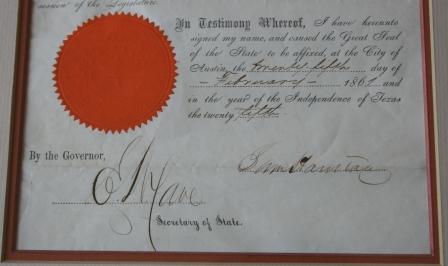 session of the Legislature.
In Testimony Whereof, I have hereunto
signed my name, and caused the Great Seal
of the State to be affixed, at the City of
Austin, the twenty fifth day of
February 1861 and
in the year of the Independence of Texas
the twenty fifth.
By the Governor,
Sam Houston
E. Cave
Secretary of State.